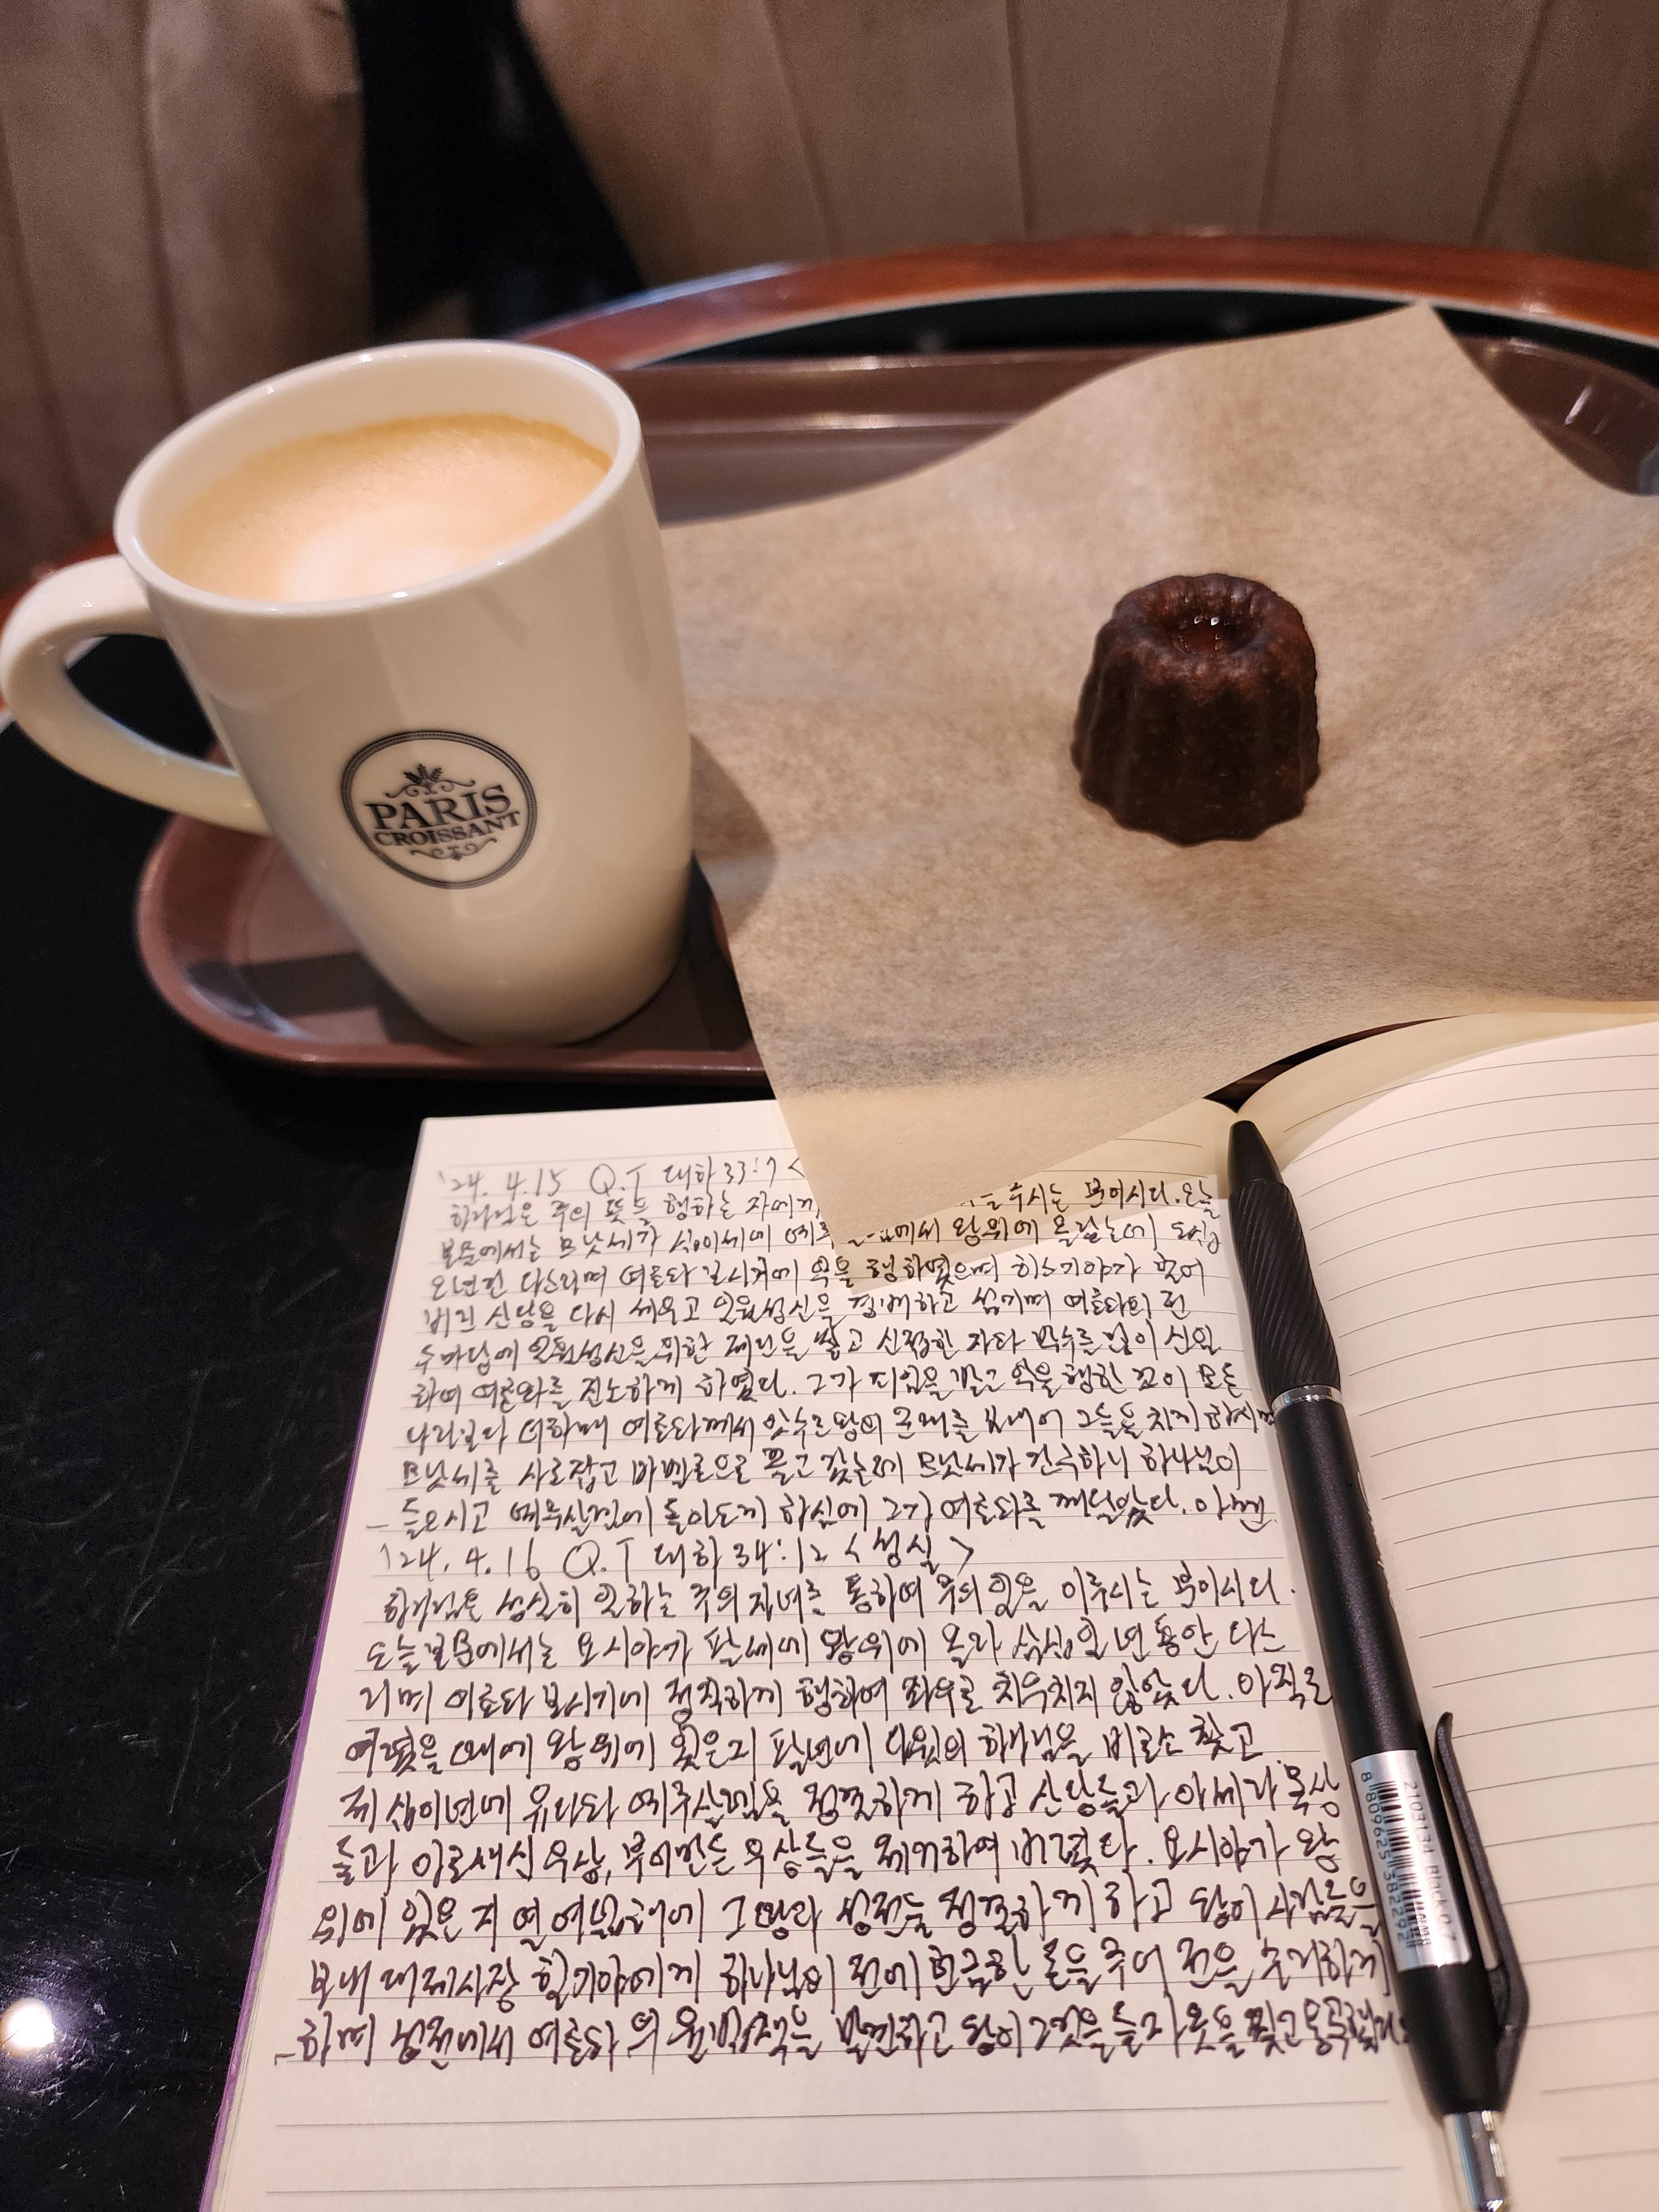 PARIS
CROISSANT
'24. 4.15 Q.T 대하 33:7 <
하나님은 주의 뜻을 행하는 자에게 주시는 분이시다. 오늘
본문에서는 므낫세가 십이세에 예루 에서 왕위에 올랐는데 오십
오년간 다스리며 여호와 보시기에 악을 행하였으며 히스기야가 헐어
버린 산당을 다시 세우고 일월성신을 경배하고 섬기며 여호와의 전
두 마당에 일월성신을 위한 제단을 쌓고 신접한 자와 박수를 많이 신임
하여 여호와를 진노하게 하였다. 그가 악을 행한 것이 모든
나라보다 더하매 여호와께서 앗수르 왕의 군대를 보내어 그들을 치게 하시매
므낫세를 사로잡고 바벨론으로 끌고 갔는데 므낫세가 간구하니 하나님이
들으시고 예루살렘에 돌아오게 하심에 그가 여호와를 깨달았다. 아멘.
'24. 4.16 Q.T 대하 34:12 <성실>
하나님은 성실히 일하는 주의 자녀를 통하여 주의 일을 이루시는 분이시다.
오늘 본문에서는 요시야가 팔세에 왕위에 올라 삼십일 년 동안 다스
리며 여호와 보시기에 정직하게 행하여 좌우로 치우치지 않았다. 아직도
어렸을 때에 왕위에 있은지 팔년에 다윗의 하나님을 비로소 찾고
제 십이년에 유다와 예루살렘을 정결하게 하고 산당들과 아세라 목상
들과 아로새긴 우상, 부어만든 우상들을 제거하여 버렸다. 요시야가 왕
위에 있은 지 열여덟째해에 그 땅과 성전을 정결하게 하고 왕이 사람들을
보내 대제사장 힐기야에게 하나님의 전에 헌금한 돈을 주어 전을 수리하게
하며 성전에서 여호와의 율법책을 발견하고 왕이 그것을 듣고 옷을 찢고 통곡
2103131 Black 0.7
8 809625 582292